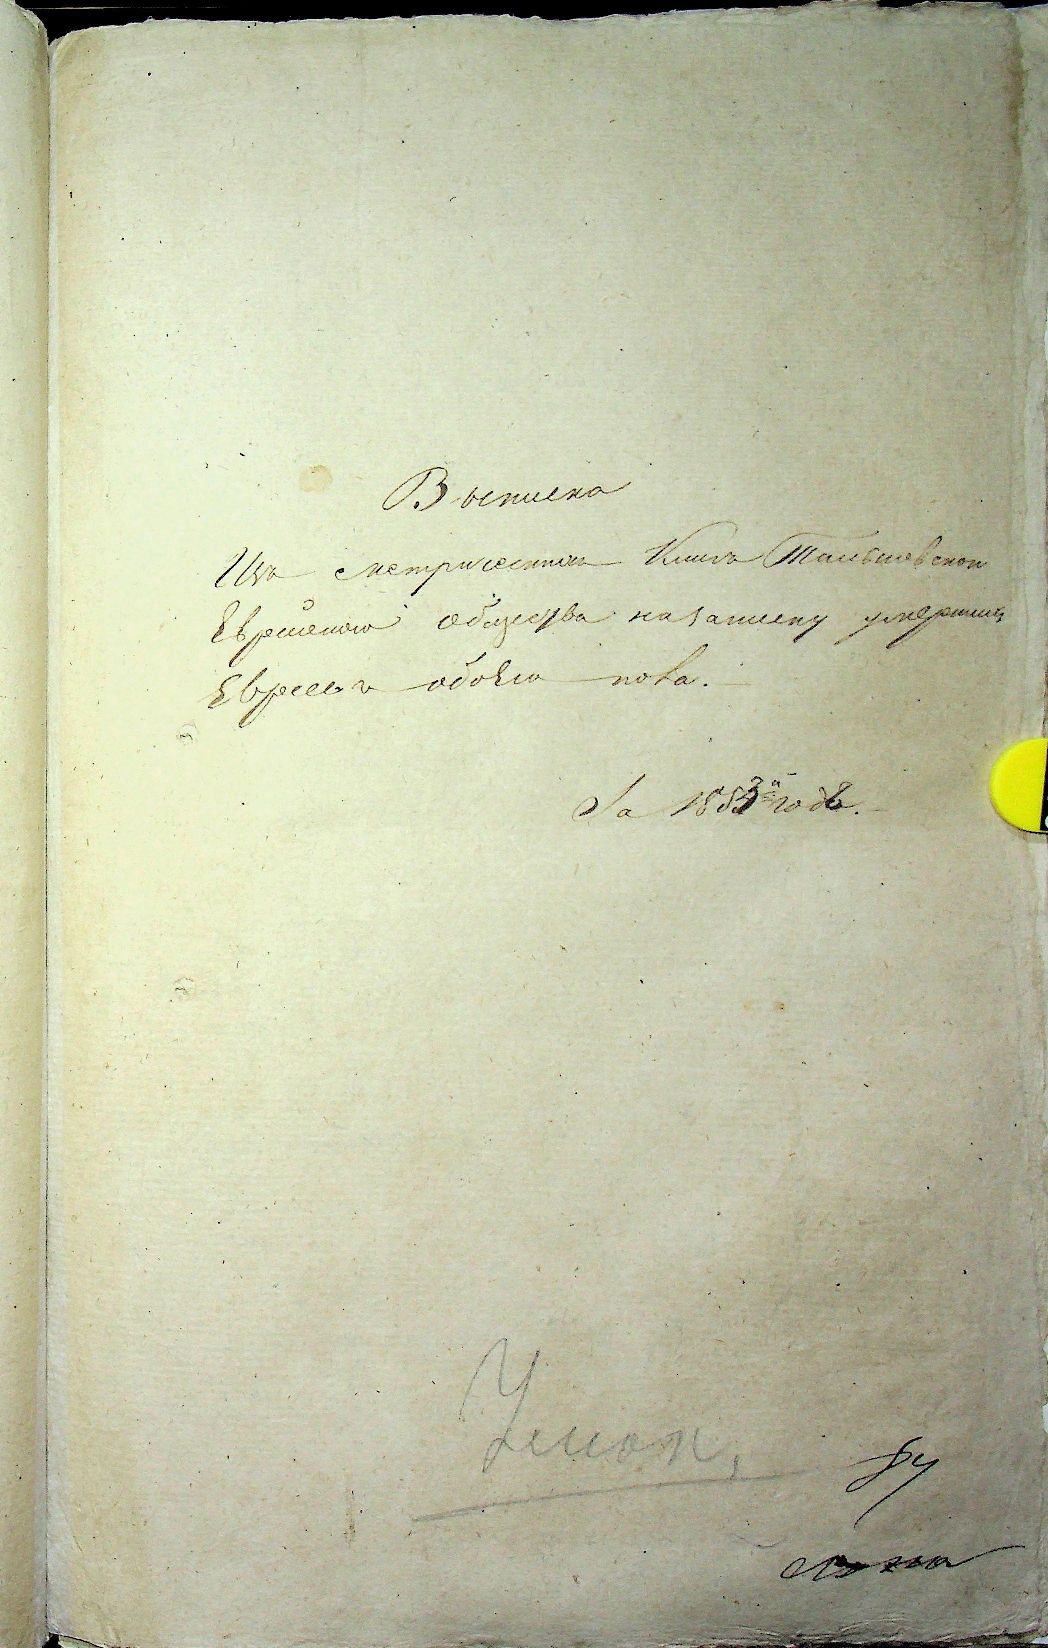 Выписка
Изъ метрическихъ Книгъ Тальновскои
Еврейского общества на записку умершихъ
Евреевъ обоего пола.
За 1853й годъ.
Уман,